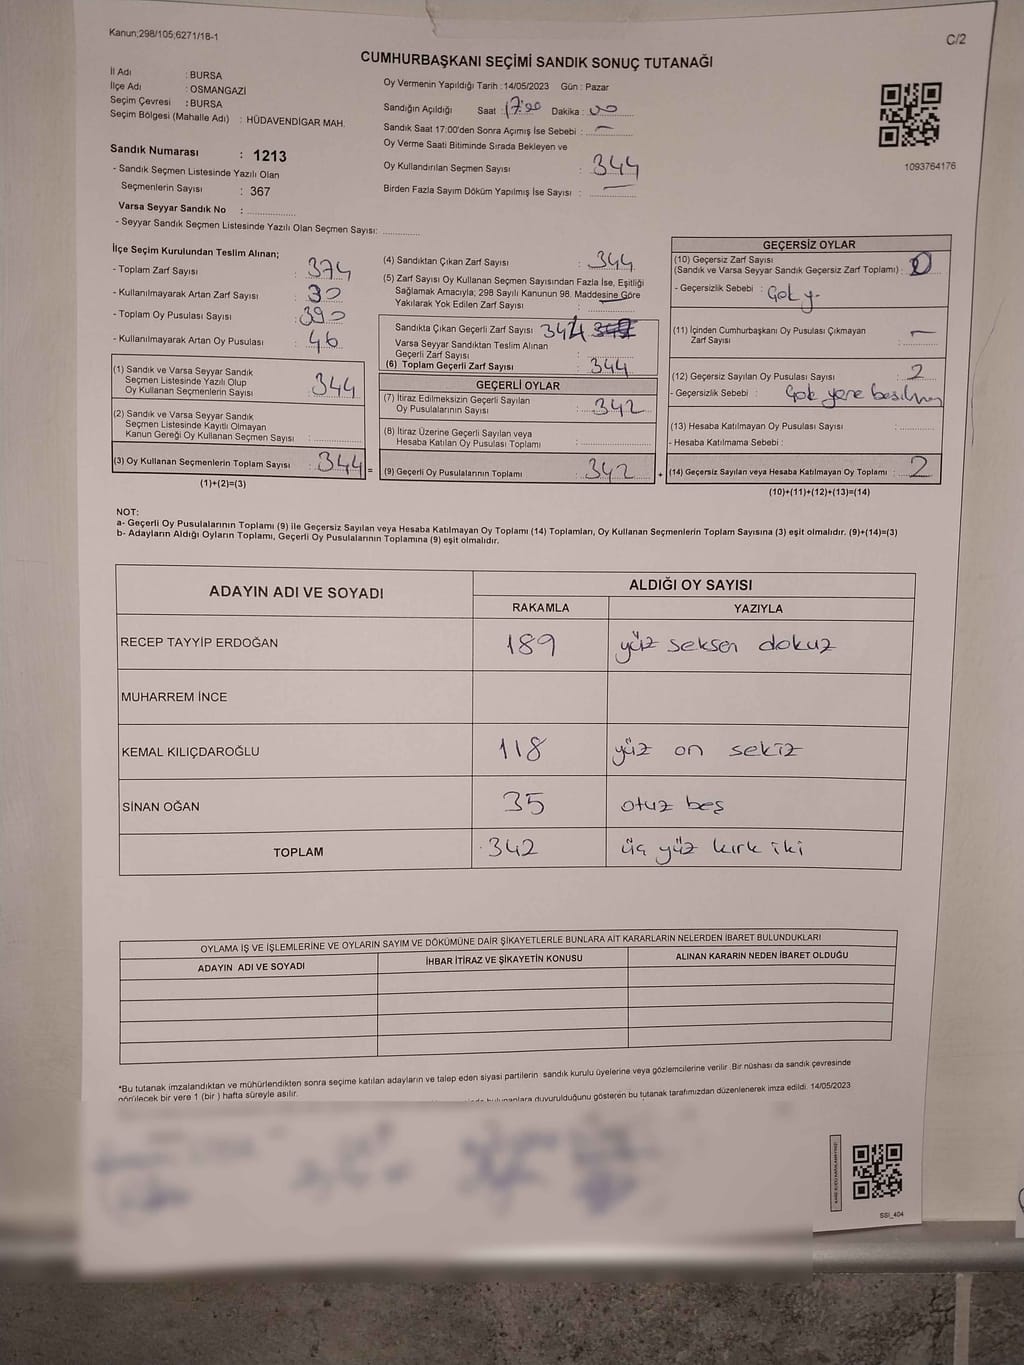 Kanun;298/105;6271/18-1
C/2
CUMHURBAŞKANI SEÇİMİ SANDIK SONUÇ TUTANAĞI
İl Adı : BURSA
İlçe Adı : OSMANGAZİ
Seçim Çevresi : BURSA
Seçim Bölgesi (Mahalle Adı) : HÜDAVENDİGAR MAH.
Sandık Numarası : 1213
- Sandık Seçmen Listesinde Yazılı Olan
Seçmenlerin Sayısı : 367
Varsa Seyyar Sandık No :
- Seyyar Sandık Seçmen Listesinde Yazılı Olan Seçmen Sayısı:
Oy Vermenin Yapıldığı Tarih : 14/05/2023 Gün : Pazar
Sandığın Açıldığı Saat : 17:00 Dakika : 00
Sandık Saat 17:00'den Sonra Açımış İse Sebebi : —
Oy Verme Saati Bitiminde Sırada Bekleyen ve
Oy Kullandırılan Seçmen Sayısı : 344
Birden Fazla Sayım Döküm Yapılmış İse Sayısı : —
1093764176
İlçe Seçim Kurulundan Teslim Alınan;
- Toplam Zarf Sayısı : 374
- Kullanılmayarak Artan Zarf Sayısı : 30
- Toplam Oy Pusulası Sayısı : 390
- Kullanılmayarak Artan Oy Pusulası : 46
(1) Sandık ve Varsa Seyyar Sandık
Seçmen Listesinde Yazılı Olup
Oy Kullanan Seçmenlerin Sayısı : 344
(2) Sandık ve Varsa Seyyar Sandık
Seçmen Listesinde Kayıtlı Olmayan
Kanun Gereği Oy Kullanan Seçmen Sayısı :
(3) Oy Kullanan Seçmenlerin Toplam Sayısı : 344 =
(1)+(2)=(3)
(4) Sandıktan Çıkan Zarf Sayısı : 344
(5) Zarf Sayısı Oy Kullanan Seçmen Sayısından Fazla İse, Eşitliği
Sağlamak Amacıyla; 298 Sayılı Kanunun 98. Maddesine Göre
Yakılarak Yok Edilen Zarf Sayısı :
Sandıkta Çıkan Geçerli Zarf Sayısı 344
Varsa Seyyar Sandıktan Teslim Alınan
Geçerli Zarf Sayısı :
(6) Toplam Geçerli Zarf Sayısı : 344
GEÇERLİ OYLAR
(7) İtiraz Edilmeksizin Geçerli Sayılan
Oy Pusulalarının Sayısı : 342
(8) İtiraz Üzerine Geçerli Sayılan veya
Hesaba Katılan Oy Pusulası Toplamı :
(9) Geçerli Oy Pusulalarının Toplamı : 342 +
GEÇERSİZ OYLAR
(10) Geçersiz Zarf Sayısı
(Sandık ve Varsa Seyyar Sandık Geçersiz Zarf Toplamı) : 0
- Geçersizlik Sebebi :
(11) İçinden Cumhurbaşkanı Oy Pusulası Çıkmayan
Zarf Sayısı : —
(12) Geçersiz Sayılan Oy Pusulası Sayısı : 2
- Geçersizlik Sebebi : Çok yere
(13) Hesaba Katılmayan Oy Pusulası Sayısı :
- Hesaba Katılmama Sebebi :
(14) Geçersiz Sayılan veya Hesaba Katılmayan Oy Toplamı : 2
(10)+(11)+(12)+(13)=(14)
NOT:
a- Geçerli Oy Pusulalarının Toplamı (9) ile Geçersiz Sayılan veya Hesaba Katılmayan Oy Toplamı (14) Toplamları, Oy Kullanan Seçmenlerin Toplam Sayısına (3) eşit olmalıdır. (9)+(14)=(3)
b- Adayların Aldığı Oyların Toplamı, Geçerli Oy Pusulalarının Toplamına (9) eşit olmalıdır.
ADAYIN ADI VE SOYADI ALDIĞI OY SAYISI
RAKAMLA YAZIYLA
RECEP TAYYİP ERDOĞAN 189 yüz seksen dokuz
MUHARREM İNCE
KEMAL KILIÇDAROĞLU 118 yüz on sekiz
SİNAN OĞAN 35 otuz beş
TOPLAM 342 üç yüz kırk iki
OYLAMA İŞ VE İŞLEMLERİNE VE OYLARIN SAYIM VE DÖKÜMÜNE DAİR ŞİKAYETLERLE BUNLARA AİT KARARLARIN NELERDEN İBARET BULUNDUKLARI
ADAYIN ADI VE SOYADI İHBAR İTİRAZ VE ŞİKAYETİN KONUSU ALINAN KARARIN NEDEN İBARET OLDUĞU
*Bu tutanak imzalandıktan ve mühürlendikten sonra seçime katılan adayların ve talep eden siyasi partilerin sandık kurulu üyelerine veya gözlemcilerine verilir .Bir nüshası da sandık çevresinde
görülecek bir yere 1 (bir ) hafta süreyle asılır.
duyurulduğunu gösteren bu tutanak tarafımızdan düzenlenerek imza edildi. 14/05/2023
SSI_404